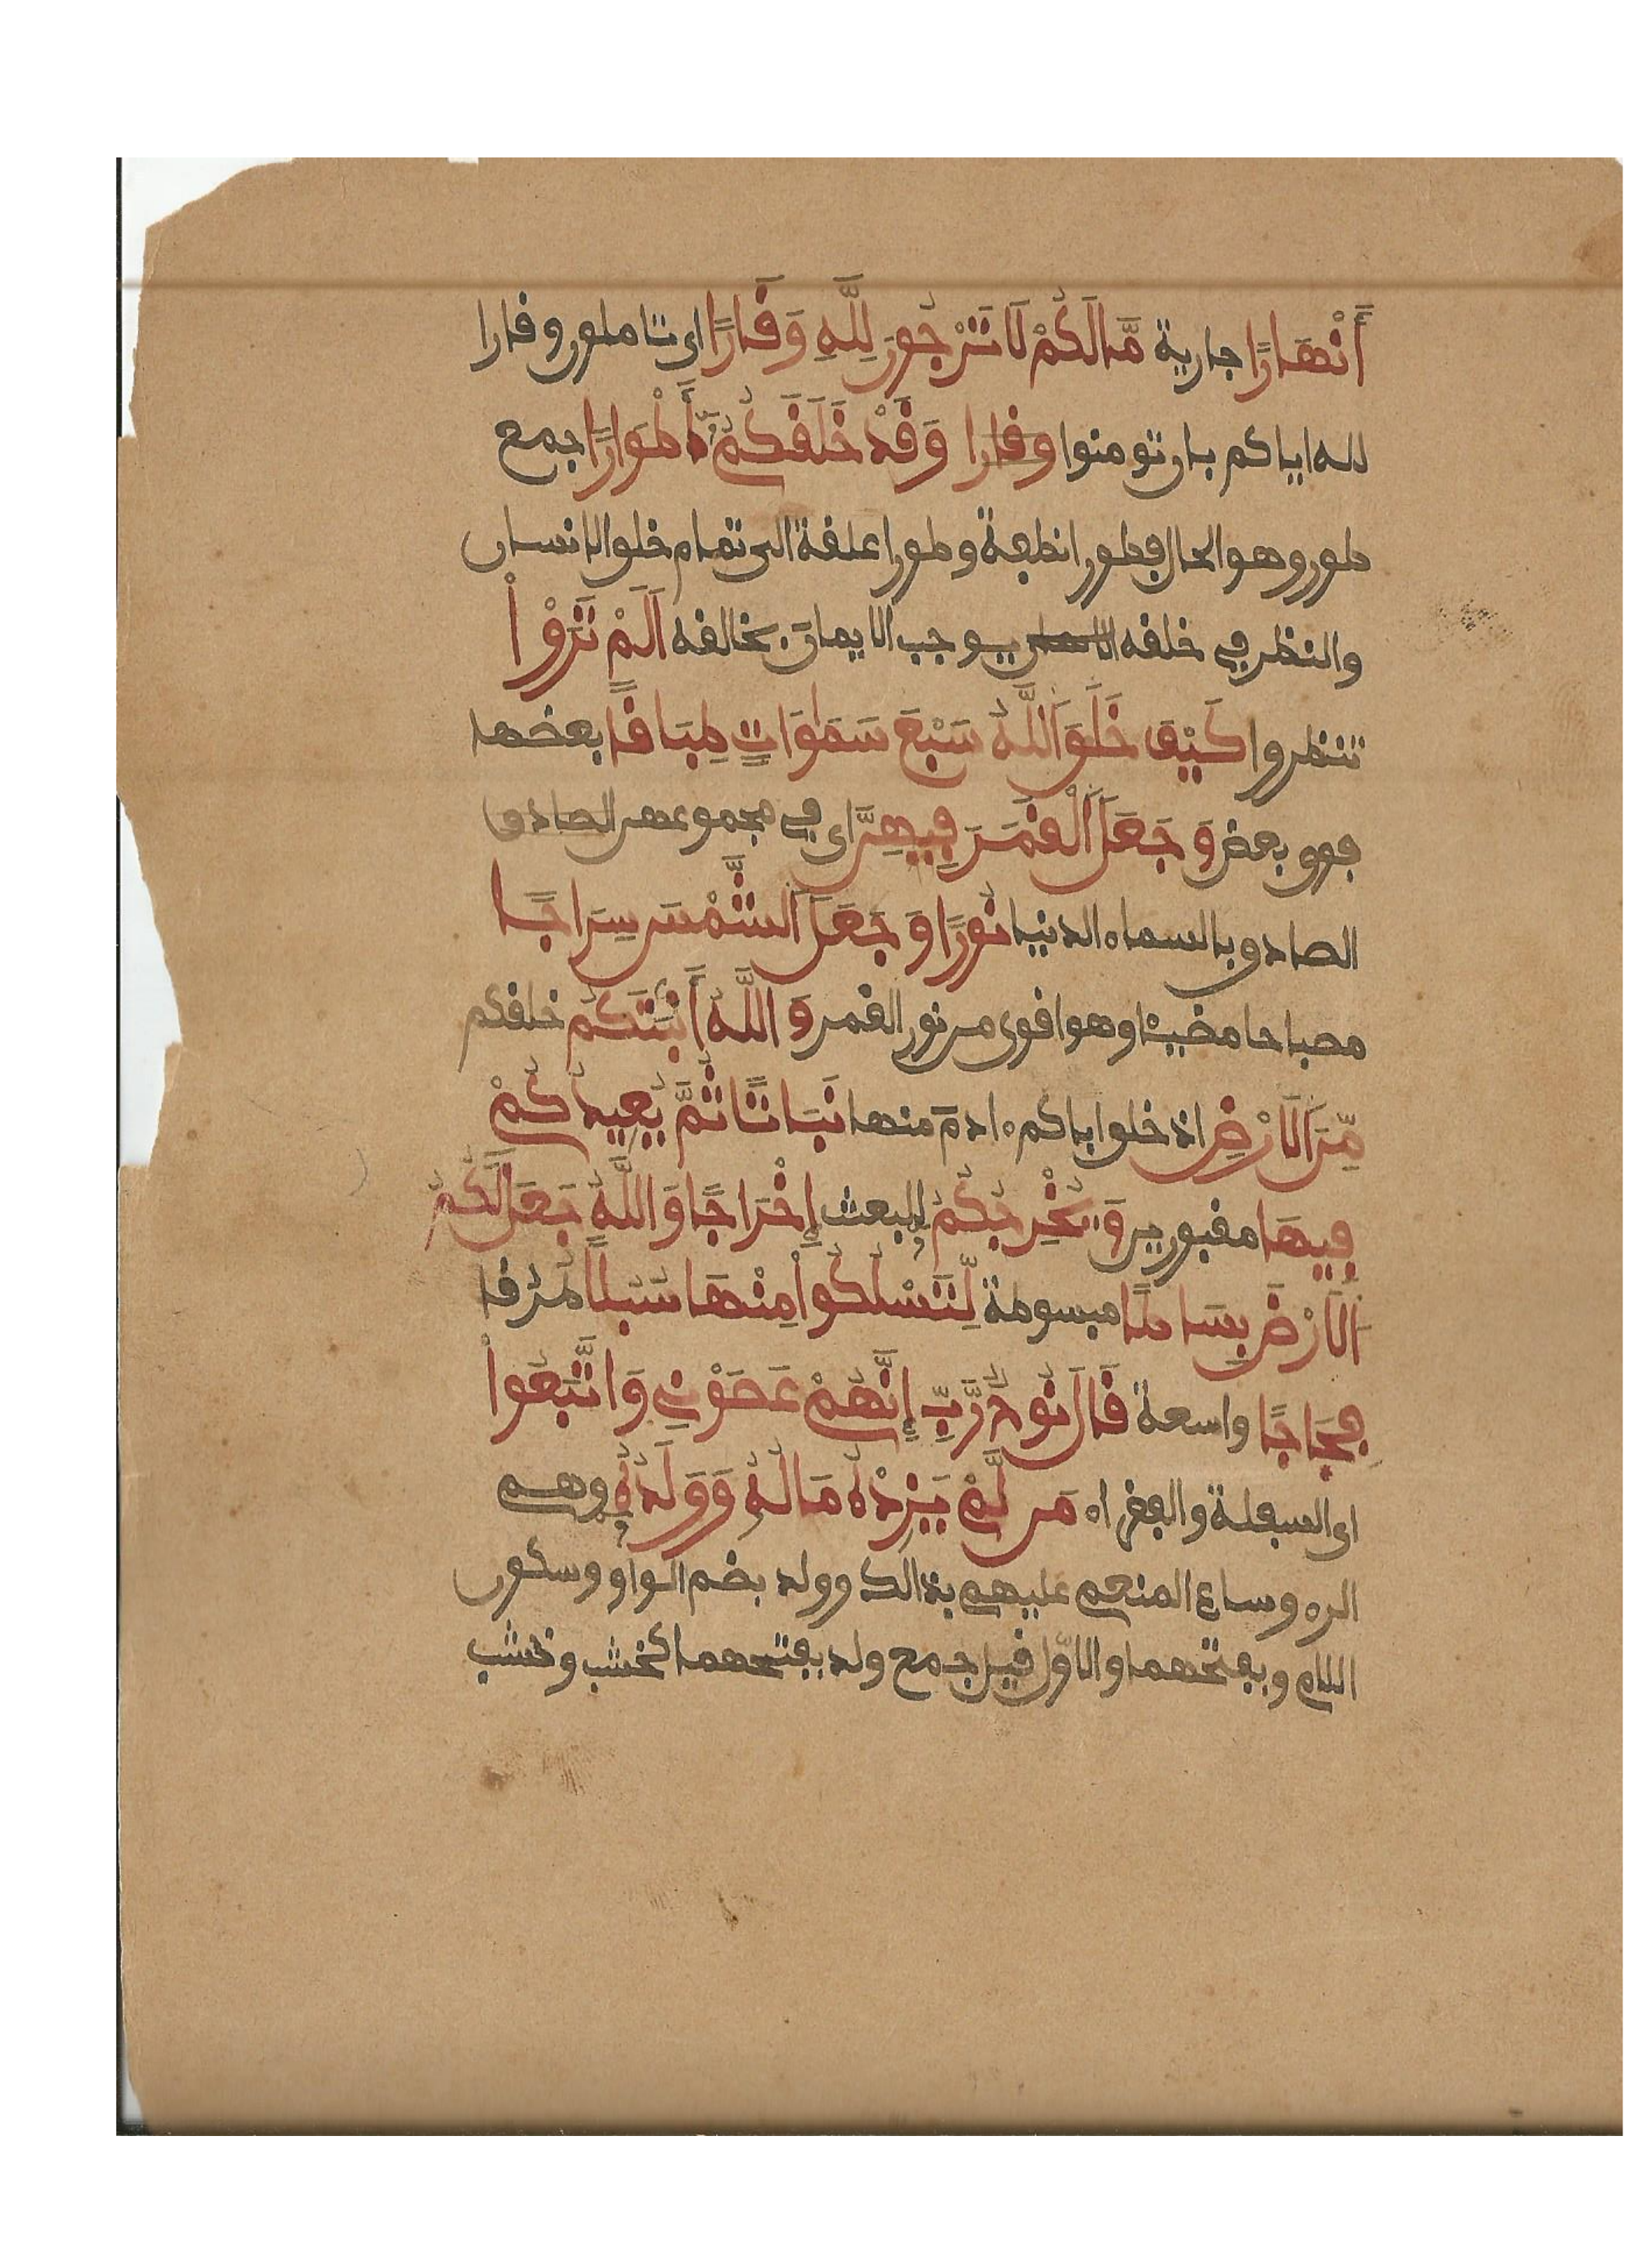 أَنْهَارًا جارية مَّا لَكُمْ لَا تَرْجُونَ لِلَّهِ وَقَارًا اى تاملون وقارا
لله اياكم بان تومنوا وقارا وَقَدْ خَلَقَكُمْ أَطْوَارًا جمع
طور وهو الحال فطورا نطفة وطورا علقة الى تمام خلق الانسان
والنظر في خلقه يوجب الايمان بخالقه أَلَمْ تَرَوْاْ
تنظروا كَيْفَ خَلَقَ اللَّهُ سَبْعَ سَمَٰوَاتٍ طِبَاقًا بعضها
فوق بعض وَجَعَلَ الْقَمَرَ فِيهِنَّ اى في مجموعهن الصادق
الصادق بالسماء الدنيا نُورًا وَجَعَلَ الشَّمْسَ سِرَاجًا
مصباحا مضيئا وهو اقوى من نور القمر وَاللَّهُ أَنْبَتَكُمْ خلقكم
مِّنَ الَارْضِ اذ خلق اباكم ءادم منها نَبَاتًا ثُمَّ يُعِيدُكُمْ
فِيهَا مقبورين وَيُخْرِجُكُمْ للبعث إِخْرَاجًا وَاللَّهُ جَعَلَ لَكُمُ
الَارْضَ بِسَاطًا مبسوطة لِّتَسْلُكُواْ مِنْهَا سُبُلًا طرقا
فِجَاجًا واسعة قَالَ نُوحٌ رَّبِّ إِنَّهُمْ عَصَوْنِي وَاتَّبَعُواْ
اى السفلة والفقراء مَن لَّمْ يَزِدْهُ مَالُهُ وَوَلَدُهُ وهم
الرءوساء المنعم عليهم بذالك وولد بضم الواو وسكون
اللام وبفتحهما والاوّل قيل جمع ولد بفتحهما كخشب وخشب